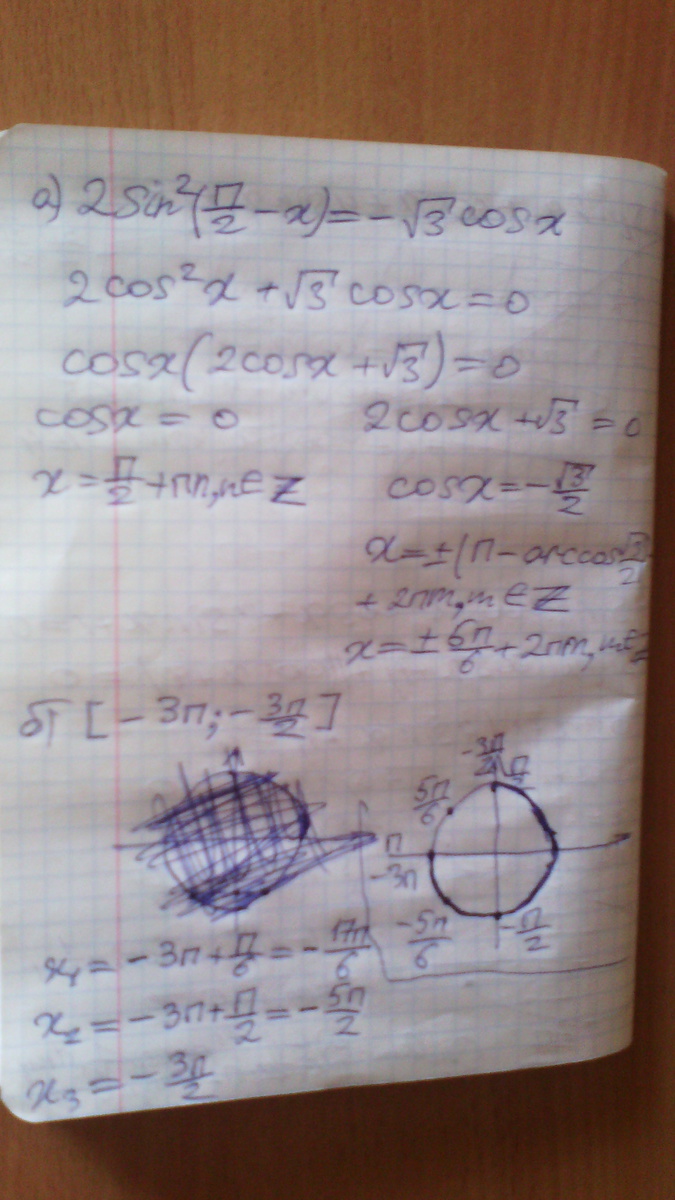 а) 2sin²(π/2 - x) = -√3 cosx
2cos²x + √3 cosx = 0
cosx(2cosx + √3) = 0
cosx = 0 2cosx + √3 = 0
x = π/2 + πn, n ∈ Z cosx = -√3/2
x = ±(π - arccos √3/2
+ 2πm, m ∈ Z
x = ± 6π/6 + 2πm, m ∈ Z
б) [-3π; -3π/2]
-3π/2 π/2
5π/6
π
-3π
-5π/6 -π/2
x₁ = -3π + π/6 = -17π/6
x₂ = -3π + π/2 = -5π/2
x₃ = -3π/2